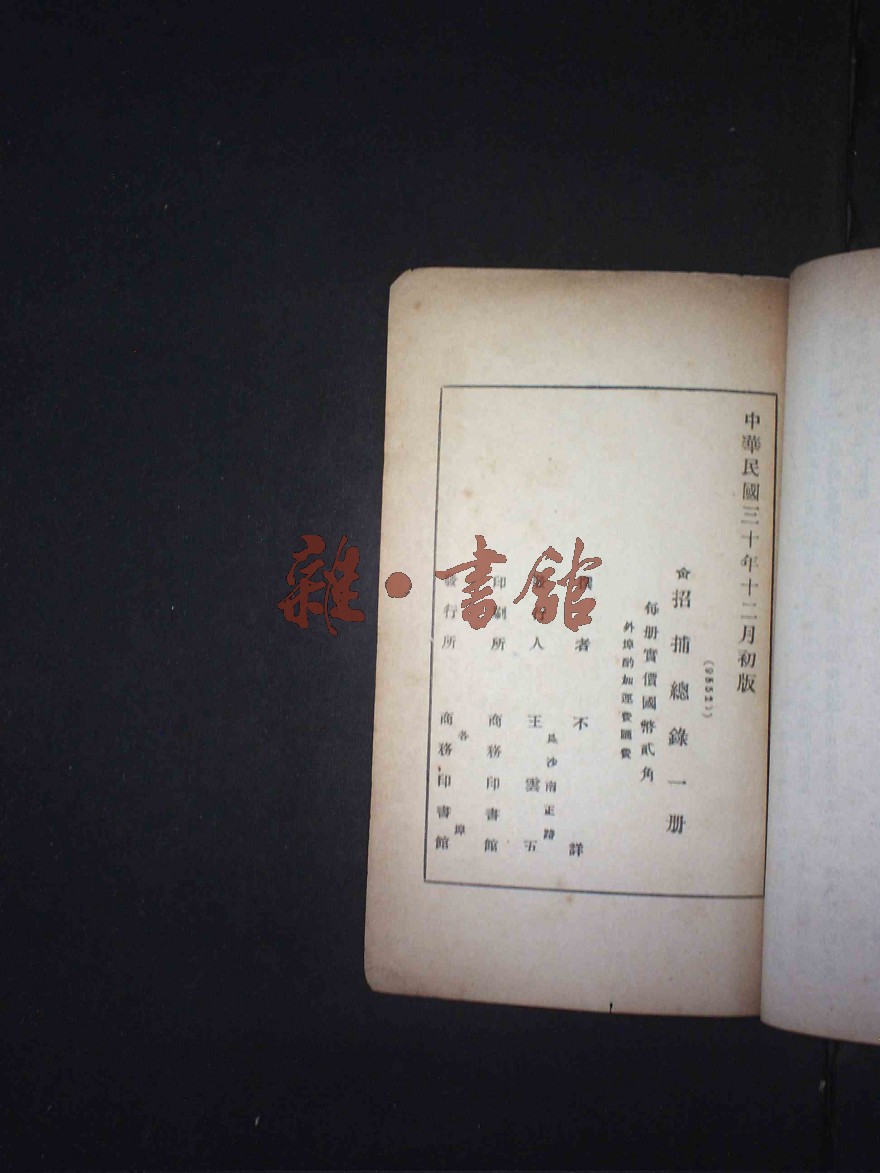 中華民國三十年十二月初版
招捕總錄一册
每册實價國幣貳角
外埠酌加運費匯費
撰者 不詳
發行人 王雲五
長沙南正路
印刷所 商務印書館
發行所 商務印書館
各埠
雜·書館